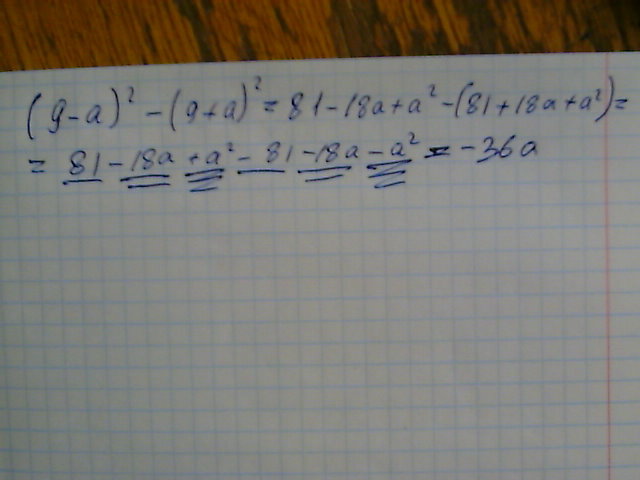 (9-a)² - (9+a)² = 81-18a+a² - (81+18a+a²) =
= 81 - 18a + a² - 81 - 18a - a² = -36a